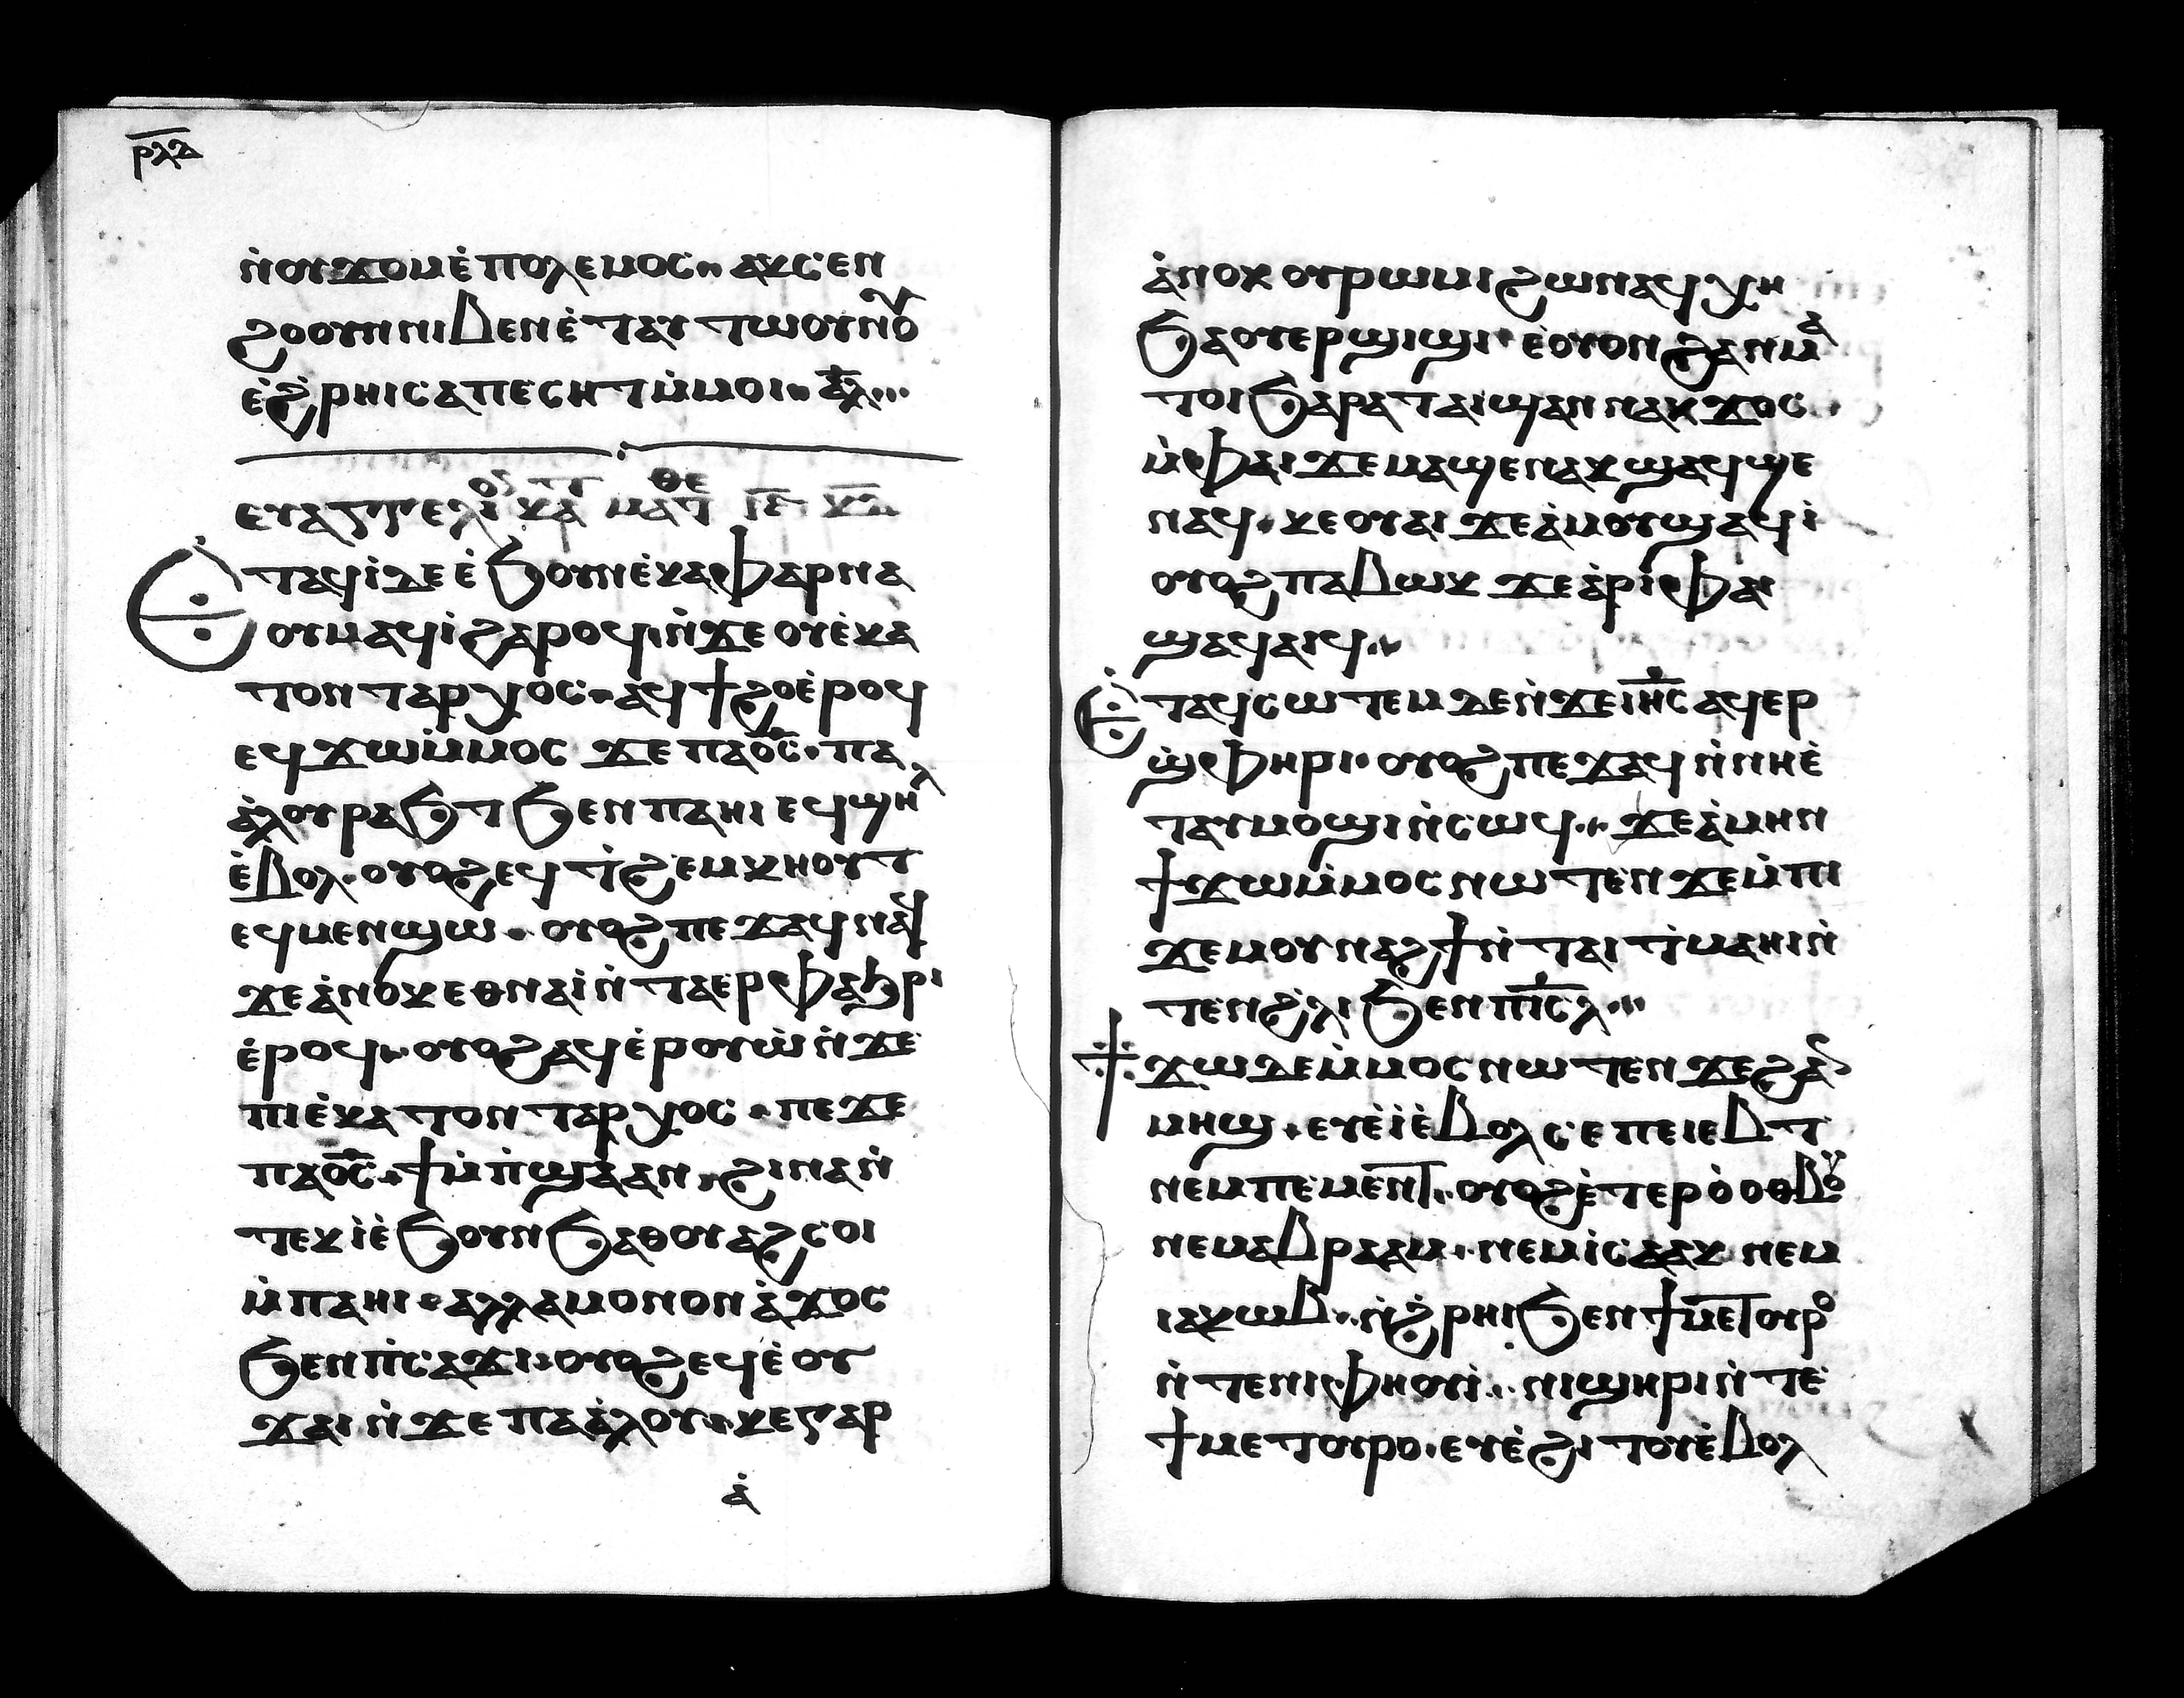 ⲣⲗⲁ
ⲛ̀ⲟⲩϫⲟⲙ ⲉ̀ⲡⲟⲗⲉⲙⲟⲥ·· ⲁⲕⲥⲉⲛ
ϩⲟⲟⲩⲛⲛⲓⲃⲉⲛ ⲉ̀ⲧⲁⲩ ⲧⲱⲟⲩⲛⲟⲩ
ⲉ̀ϩ̀ⲣⲏⲓ ⲥⲁⲡⲉⲥⲏⲧ ⲙ̀ⲙⲟⲓ·· ⲁⲗ···
ⲉⲩⲁⲅⲅⲉⲗⲓ ⲕⲁ ⲙⲁⲧ
Ⲉ̀ⲧⲁϥⲓ̀ ⲇⲉ ⲉ̀ϧⲟⲩⲛ ⲉ̀ⲕⲁⲫⲁⲣⲛⲁ
ⲟⲩⲙ ⲁϥⲓ̀ ϩⲁⲣⲟϥ ⲛ̀ϫⲉ ⲟⲩⲉ̀ⲕⲁ
ⲧⲟⲛⲧⲁⲣⲭⲟⲥ· ⲁϥϯϩⲟ ⲉ̀ⲣⲟϥ
ⲉϥϫⲱ ⲙ̀ⲙⲟⲥ ϫⲉ ⲡⲁⲟ̅ⲥ̅· ⲡⲁ
ⲁ̀ⲗⲟⲩ ⲣⲁϧⲧ ϧⲉⲛ ⲡⲁⲏⲓ ⲉϥϣⲏⲗ
ⲉ̀ⲃⲟⲗ· ⲟⲩⲟϩ ⲉϥⲧ̀ϩⲉⲙⲕⲏⲟⲩⲧ
ⲉϥⲙⲉⲛϣⲱ· ⲟⲩⲟϩ ⲡⲉϫⲁϥ ⲛⲁϥ
ϫⲉ ⲁ̀ⲛⲟⲕ ⲉⲑⲛⲁⲓ̀ ⲛ̀ⲧⲁⲉⲣⲫⲁϧⲣⲓ
ⲉ̀ⲣⲟϥ·· ⲟⲩⲟϩ ⲁϥⲉ̀ⲣⲟⲩⲱ̀ ⲛ̀ϫⲉ
ⲡⲓⲉ̀ⲕⲁⲧⲟⲛⲧⲁⲣⲭⲟⲥ· ⲡⲉϫⲉ
ⲡⲁⲟ̅ⲥ̅· ϯⲙ̀ⲡ̀ϣⲁ ⲁⲛ· ϩⲓⲛⲁ ⲛ̀
ⲧⲉⲕⲓ̀ ⲉ̀ϧⲟⲩⲛ ϧⲁ ⲑⲟⲩⲁϩⲥⲟⲓ
ⲙ̀ⲡⲁⲏⲓ· ⲁⲗⲗⲁ ⲙⲟⲛⲟⲛ ⲁ̀ϫⲟⲥ
ϧⲉⲛ ⲡ̀ⲥⲁϫⲓ· ⲟⲩⲟϩ ⲉϥⲉ̀ⲟⲩ
ϫⲁⲓ ⲛ̀ϫⲉ ⲡⲁⲁ̀ⲗⲟⲩ· ⲕⲉⲅⲁⲣ
ⲁ̀
ⲁ̀ⲛⲟⲕ ⲟⲩⲣⲱⲙⲓ ϩⲱ ⲛⲁϥⲭⲏ
ϧⲁ ⲟⲩⲉⲣϣⲓϣⲓ· ⲉ̀ⲟⲩⲟⲛ ϩⲁⲛⲙⲁ
ⲧⲟⲓ ϧⲁⲣⲁⲧ ⲁⲓϣⲁⲛⲛⲁⲕϫⲟⲥ
ⲙ̀ⲫⲁⲓ ϫⲉ ⲙⲁϣⲉⲛⲁⲕ ϣⲁϥϣⲉ
ⲛⲁϥ· ⲕⲉⲟⲩⲁⲓ ϫⲉ ⲁ̀ⲙⲟⲩ ϣⲁϥⲓ̀
ⲟⲩⲟϩ ⲡⲁⲃⲱⲕ ϫⲉ ⲁ̀ⲣⲓⲫⲁⲓ
ϣⲁϥⲁⲓϥ··
Ⲉ̀ⲧⲁϥⲥⲱⲧⲉⲙ ⲇⲉ ⲛ̀ϫⲉ ⲓⲏ̅ⲥ̅ ⲁϥⲉⲣ
ϣ̀ⲫⲏⲣⲓ· ⲟⲩⲟϩ ⲡⲉϫⲁϥ ⲛ̀ⲛⲏⲉ̀
ⲧⲁⲩⲙⲟϣⲓ ⲛ̀ⲥⲱϥ·· ϫⲉ ⲁ̀ⲙⲏⲛ
ϯϫⲱ ⲙ̀ⲙⲟⲥ ⲛⲱⲧⲉⲛ ϫⲉ ⲙ̀ⲡⲓ
ϫⲉⲙ ⲟⲩⲛⲁϩϯ ⲛ̀ⲧⲁⲓ ⲧ̀ⲙⲁⲏⲓ ⲛ̀
ⲧⲉⲛϩ̀ⲗⲓ ϧⲉⲛ ⲡⲓ̅ⲥ̅ⲗ···
ϯϫⲱ ⲇⲉ ⲙ̀ⲙⲟⲥ ⲛⲱⲧⲉⲛ ϫⲉ ϩⲁⲛ
ⲙⲏϣ· ⲉⲩⲉ̀ⲓ̀ ⲉ̀ⲃⲟⲗ ⲥⲉⲡⲉⲓⲉⲃⲧ
ⲛⲉⲙ ⲡⲉⲙⲉⲛⲧ·· ⲟⲩⲟϩ ⲉ̀ⲧⲉⲣⲟ̀ⲟⲑⲃⲟⲩ
ⲛⲉⲙ ⲁⲃⲣⲁⲁⲙ· ⲛⲉⲙ ⲓ̀ⲥⲁⲁⲕ ⲛⲉⲙ
ⲓⲁⲕⲱⲃ·· ⲛ̀ϩ̀ⲣⲏⲓ ϧⲉⲛ ϯⲙⲉⲧⲟⲩⲣⲟ
ⲛ̀ⲧⲉ ⲛⲓⲫⲏⲟⲩⲓ̀·· ⲛⲓϣⲏⲣⲓ ⲛ̀ⲧⲉ
ϯⲙⲉⲧⲟⲩⲣⲟ· ⲉⲩⲉ̀ϩⲓⲧⲟⲩ ⲉ̀ⲃⲟⲗ